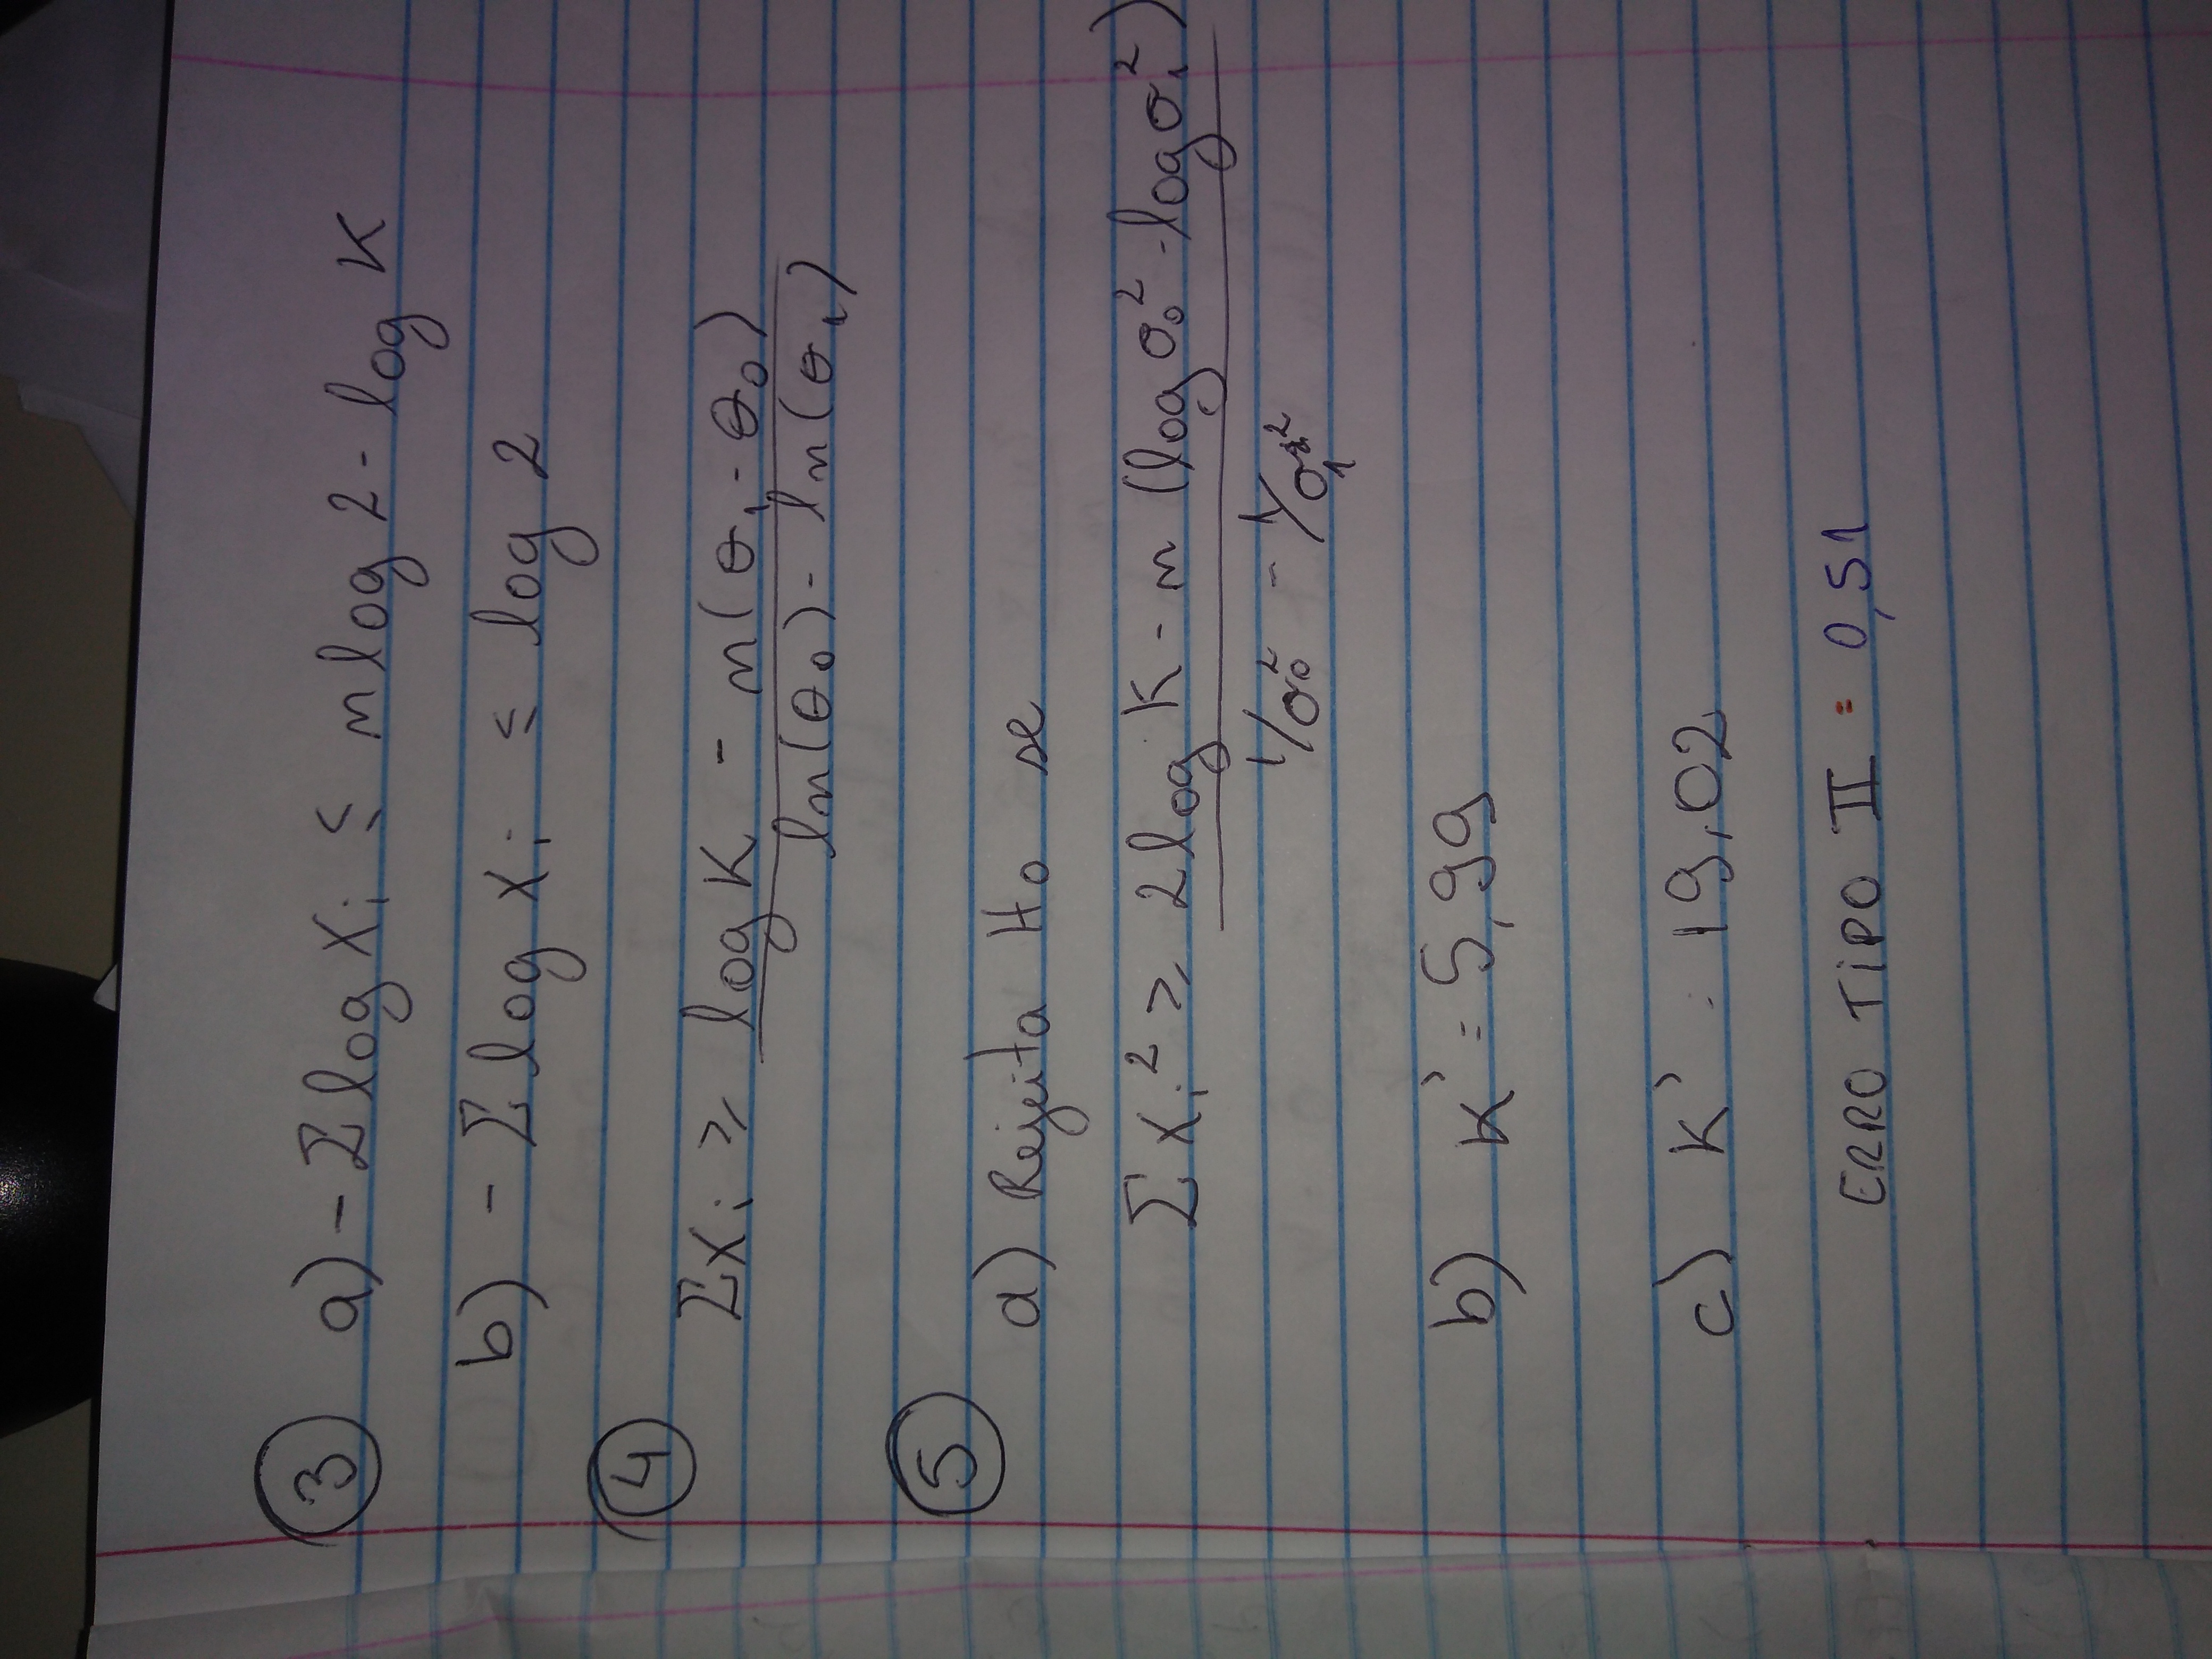 ③ a) - Σ log Xi ≤ n log 2 - log K
b) - Σ log Xi ≤ log 2
④
ΣXi ≥ log K - n(θ1 - θ0)
ln(θ0) - ln(θ1)
⑤
a) Rejeita H0 se
Σ Xi² ≥ 2 log K - n (log σ0² - log σ1²)
1/σ0² - 1/σ1²
b) K' = 5,99
c) K' = 19,02
ERRO TIPO II = 0,51